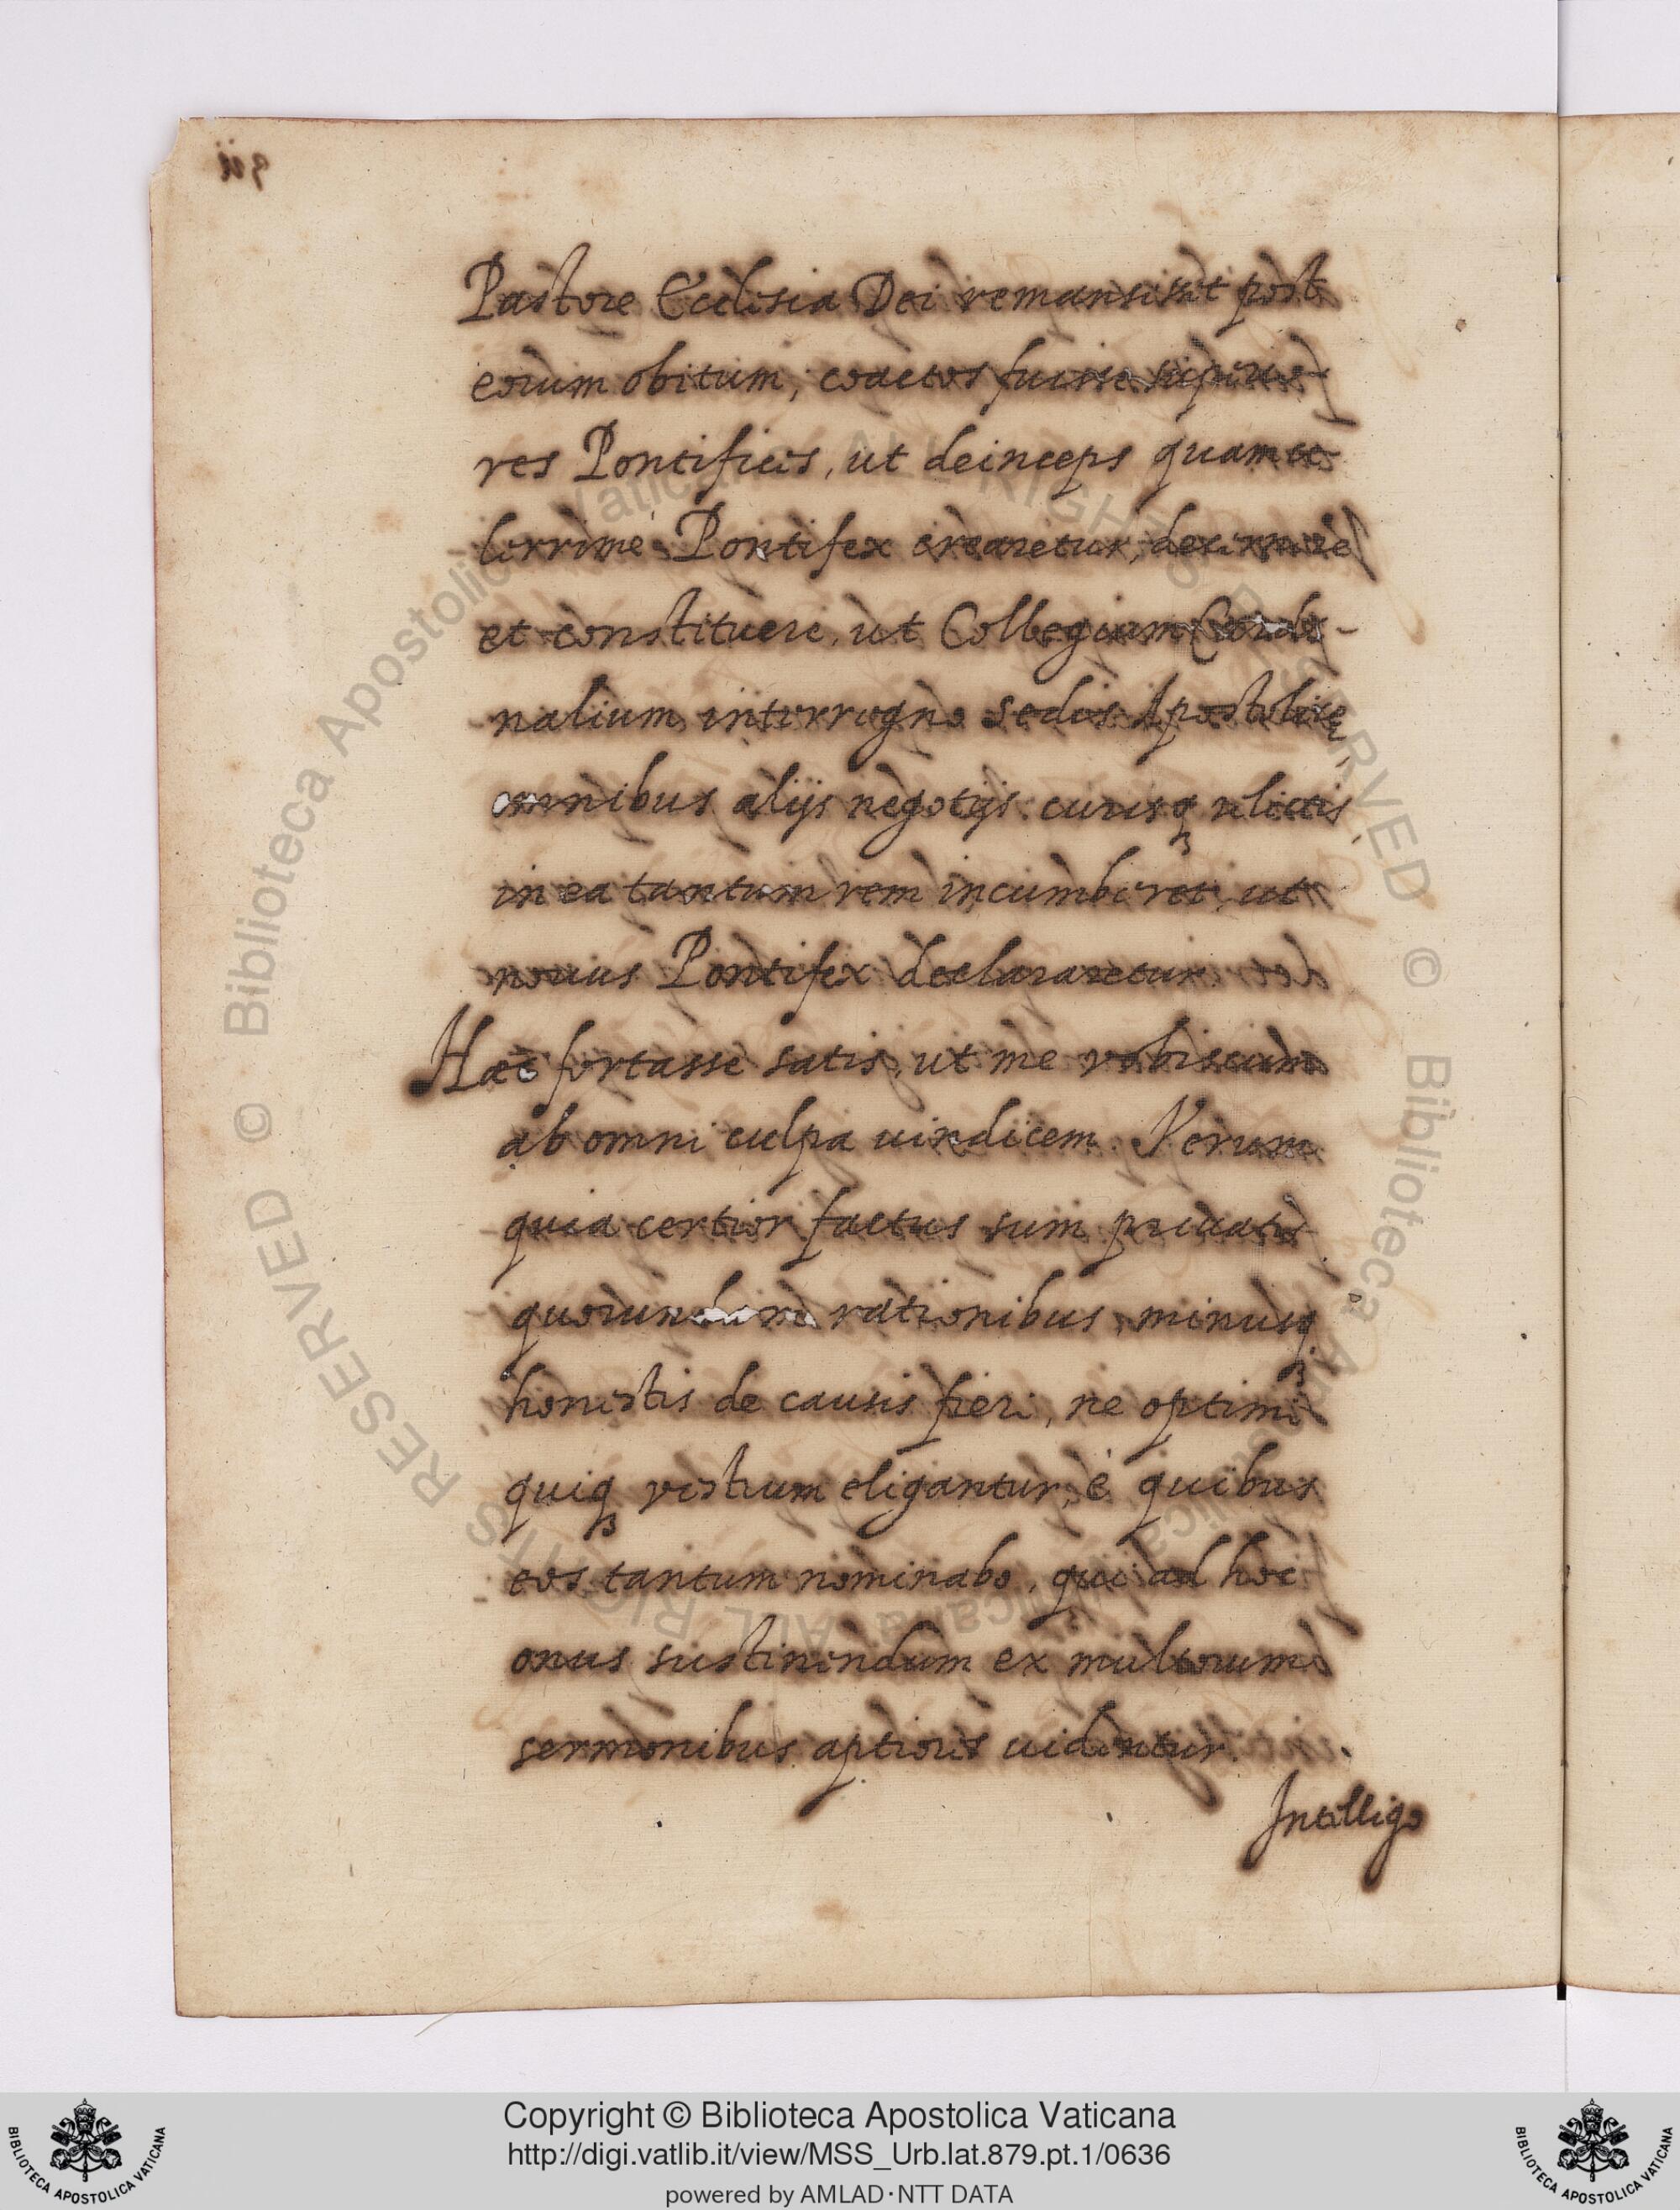 Pastore Ecclesia Dei remansisset post
eorum obitum, coactos fuisse superio-
res Pontifices, ut deinceps quam ce-
lerrime Pontifex crearetur, decernere
et constituere, ut Collegium Cardi-
nalium interregno sedis Apostolicę
omnibus alijs negotijs curisq3 relictis
in ea tantum rem incumberet, ut
nouus Pontifex declararetur.
Hæc fortasse satis, ut me vobiscum
ab omni culpa uindicem. Verum
quia certior factus sum priuatis
quorundam rationibus, minusq3
honestis de causis fieri, ne optimi
quiq3 vestrum eligantur, è quibus
eos tantum nominabo, qui ad hoc
onus sustinendum ex multorum
sermonibus aptiores uidentur.
Intelligo
Copyright © Biblioteca Apostolica Vaticana
http://digi.vatlib.it/view/MSS_Urb.lat.879.pt.1/0636
powered by AMLAD·NTT DATA
BIBLIOTECA APOSTOLICA VATICANA
BIBLIOTECA APOSTOLICA VATICANA
© Biblioteca Apostolica Vaticana ALL RIGHTS RESERVED
© Biblioteca Apostolica Vaticana ALL RIGHTS RESERVED